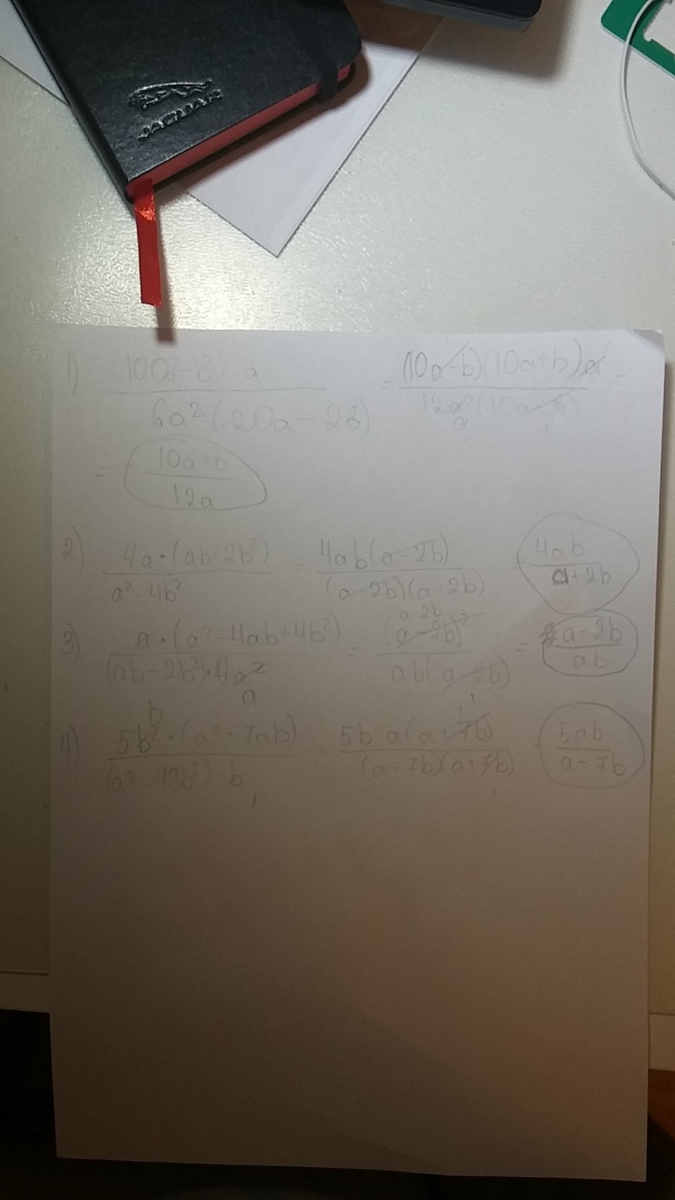 JAGUAR
1) (100a²-b²) a / 6a²(20a-2b) = (10a-b)(10a+b)a / 12a²(10a-b) =
= 10a+b / 12a
2) 4a·(ab-2b²) / a²-4b² = 4ab(a-2b) / (a-2b)(a+2b) = 4ab / a+2b
3) a·(a²-4ab+4b²) / (ab-2b²)·4a² a = (a-2b)² a-2b / ab(a-2b) = a-2b / ab
4) 5b² b·(a²+7ab) / (a²-49b²)·b = 5b a(a+7b) / (a-7b)(a+7b) = 5ab / a-7b